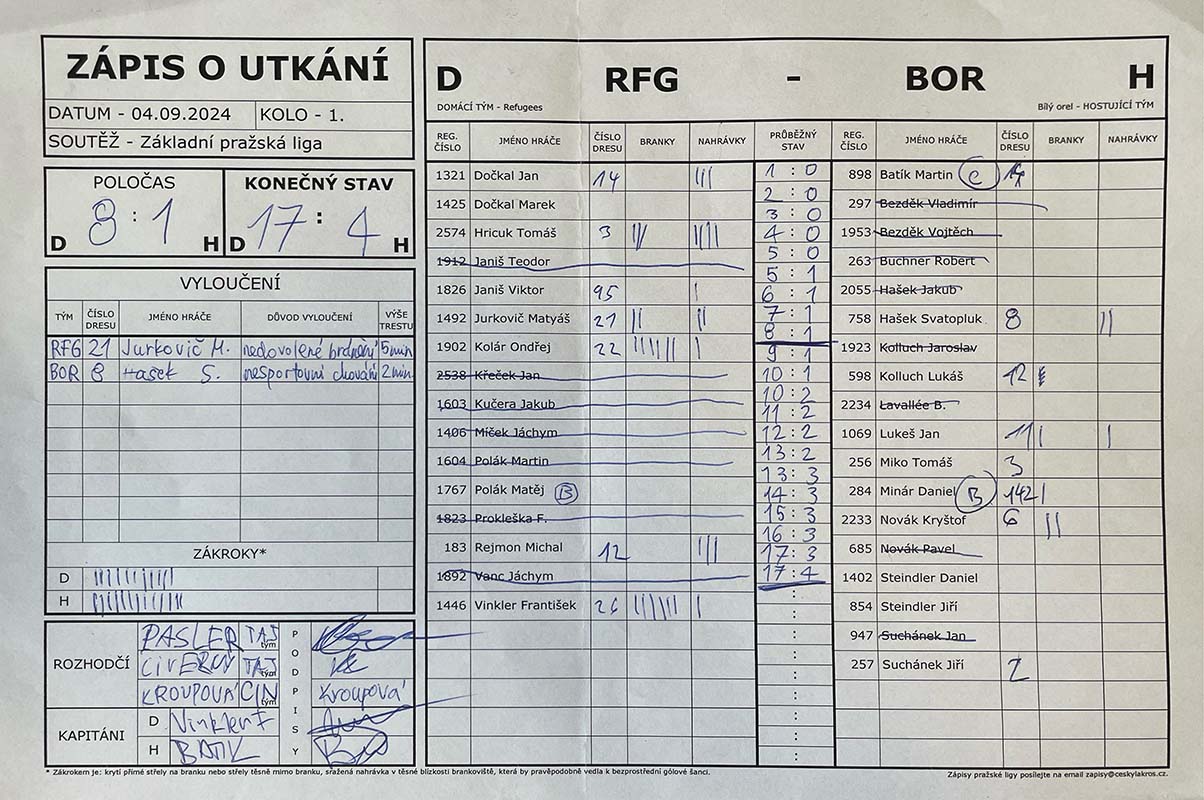 ZÁPIS O UTKÁNÍ
DATUM - 04.09.2024 KOLO - 1.
SOUTĚŽ - Základní pražská liga
POLOČAS KONEČNÝ STAV
D 8 : 1 H D 17 : 4 H
VYLOUČENÍ
TÝM ČÍSLO DRESU JMÉNO HRÁČE DŮVOD VYLOUČENÍ VÝŠE TRESTU
RFG 21 Jurkovič M. nedovolené bránění 5min
BOR 8 Hašek S. nesportovní chování 2min
ZÁKROKY*
D
H
ROZHODČÍ
PASLER TAJ tým
TAJ tým
KROUPOVÁ CIN tým Kroupová
PODPISY
KAPITÁNI
D Vinkler F
H BATÍK
D RFG - BOR H
DOMÁCÍ TÝM - Refugees Bílý orel - HOSTUJÍCÍ TÝM
REG. ČÍSLO JMÉNO HRÁČE ČÍSLO DRESU BRANKY NAHRÁVKY PRŮBĚŽNÝ STAV REG. ČÍSLO JMÉNO HRÁČE ČÍSLO DRESU BRANKY NAHRÁVKY
1321 Dočkal Jan 14 |||
1425 Dočkal Marek
2574 Hricuk Tomáš 3 ||| ||||
1912 Janiš Teodor
1826 Janiš Viktor 95 |
1492 Jurkovič Matyáš 21 || ||
1902 Kolár Ondřej 22 |||||| |
2538 Křeček Jan
1603 Kučera Jakub
1406 Míček Jáchym
1604 Polák Martin
1767 Polák Matěj B
1823 Prokleška F.
183 Rejmon Michal 12 |||
1892 Vanc Jáchym
1446 Vinkler František 26 |||||| |
1 : 0
2 : 0
3 : 0
4 : 0
5 : 0
5 : 1
6 : 1
7 : 1
8 : 1
9 : 1
10 : 1
10 : 2
11 : 2
12 : 2
13 : 2
13 : 3
14 : 3
15 : 3
16 : 3
17 : 3
17 : 4
898 Batík Martin C 14
297 Bezděk Vladimír
1953 Bezděk Vojtěch
263 Buchner Robert
2055 Hašek Jakub
758 Hašek Svatopluk 8 ||
1923 Kolluch Jaroslav
598 Kolluch Lukáš 12
2234 Lavallée B.
1069 Lukeš Jan 11 | |
256 Miko Tomáš 3
284 Minár Daniel B 142 |
2233 Novák Kryštof 6 ||
685 Novák Pavel
1402 Steindler Daniel
854 Steindler Jiří
947 Suchánek Jan
257 Suchánek Jiří 2
* Zákrokem je: krytí přímé střely na branku nebo střely těsně mimo branku, sražená nahrávka v těsné blízkosti brankoviště, která by pravěpodobně vedla k bezprostřední gólové šanci.
Zápisy pražské ligy posílejte na email zapisy@ceskylakros.cz.